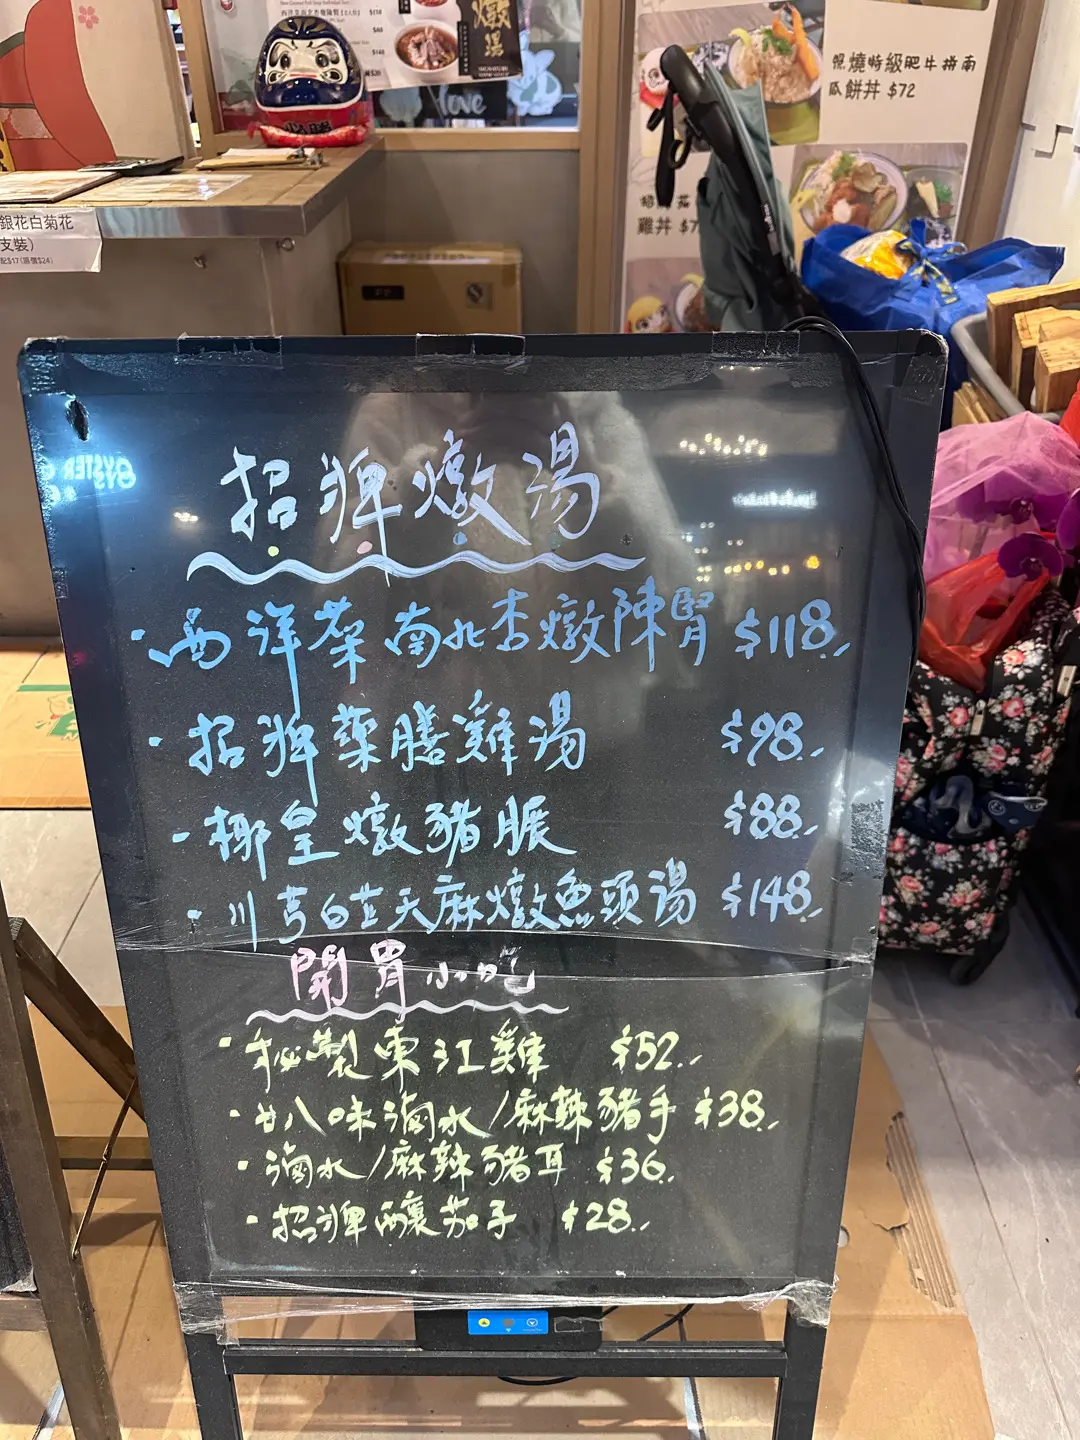 燉湯
$118
love
焗燒特級肥牛拼南
瓜餅丼 $72
雞丼 $7
銀花白菊花
支裝)
配$17(原價$24)
OYSTER
招牌燉湯
·西洋菜南北杏燉陳腎 $118.-
·招牌藥膳雞湯 $98.-
·椰皇燉豬腒 $88.-
·川芎白芷天麻燉魚頭湯 $148.-
開胃小吃
·秘製東江雞 $52.-
·廿八味滷水/麻辣豬手 $38.-
·滷水/麻辣豬耳 $36.-
·招牌釀茄子 $28.-